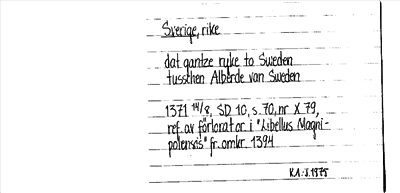 Sverige, rike
dat gantze ryke to Sweden
tusschen Alberde van Sweden
1371 14/8, SD 10, s. 70, nr X 79,
ref. av förlorat or. i "Libellus Magni-
polensis" fr. omkr. 1394
KA: S. 1875